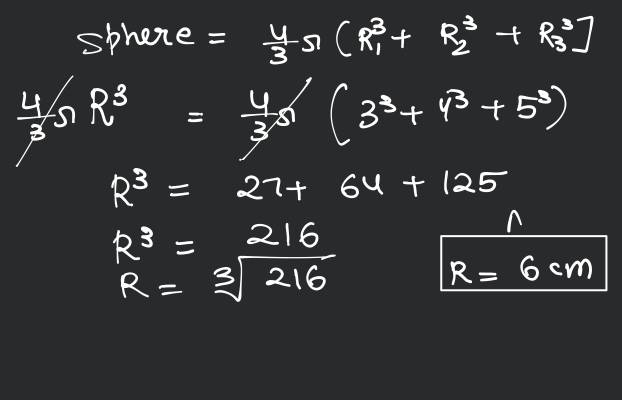 sphere = 4/3 π (R₁³ + R₂³ + R₃³]
4/3 π R³ = 4/3 π (3³ + 4³ + 5³)
R³ = 27 + 64 + 125
R³ = 216
R = ∛216
R = 6 cm